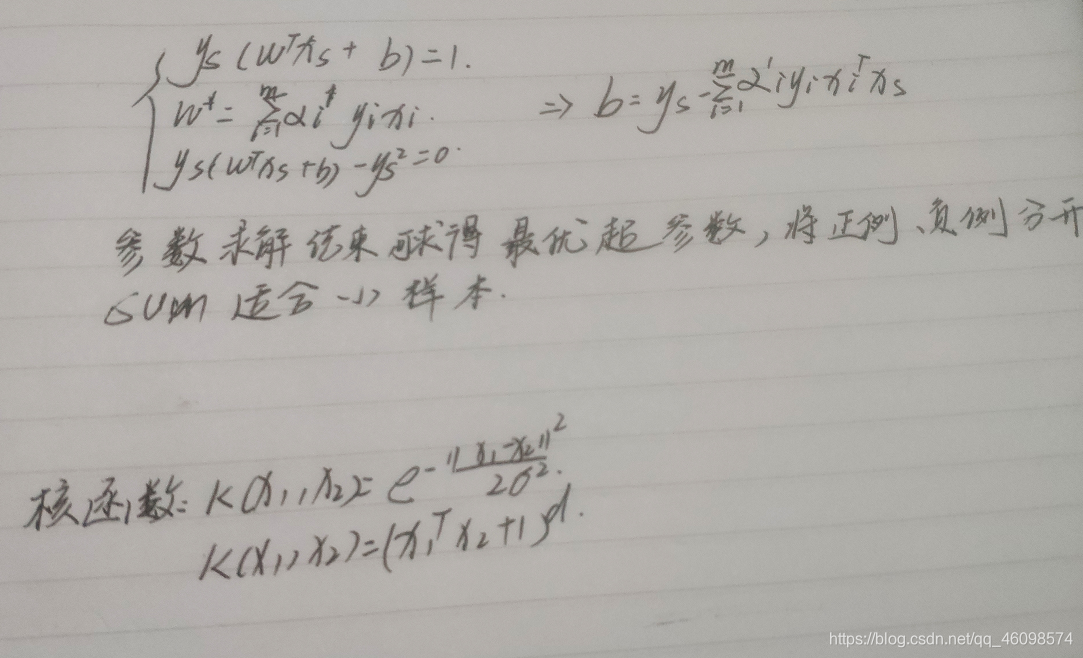 ys (wᵀxs + b) = 1.
w* = Σᵢ₌₁ᵐ αi* yi xi. ⇒ b = ys - Σᵢ₌₁ᵐ αi yi xiᵀ xs
ys(wᵀxs + b) - ys² = 0.
参数求解结束可求得最优超参数,将正例、负例分开
SVM 适合小样本.
核函数: K(x₁, x₂) = e^(-‖x₁-x₂‖²/2σ²).
K(x₁, x₂) = (x₁ᵀx₂+1)ᵈ.
https://blog.csdn.net/qq_46098574